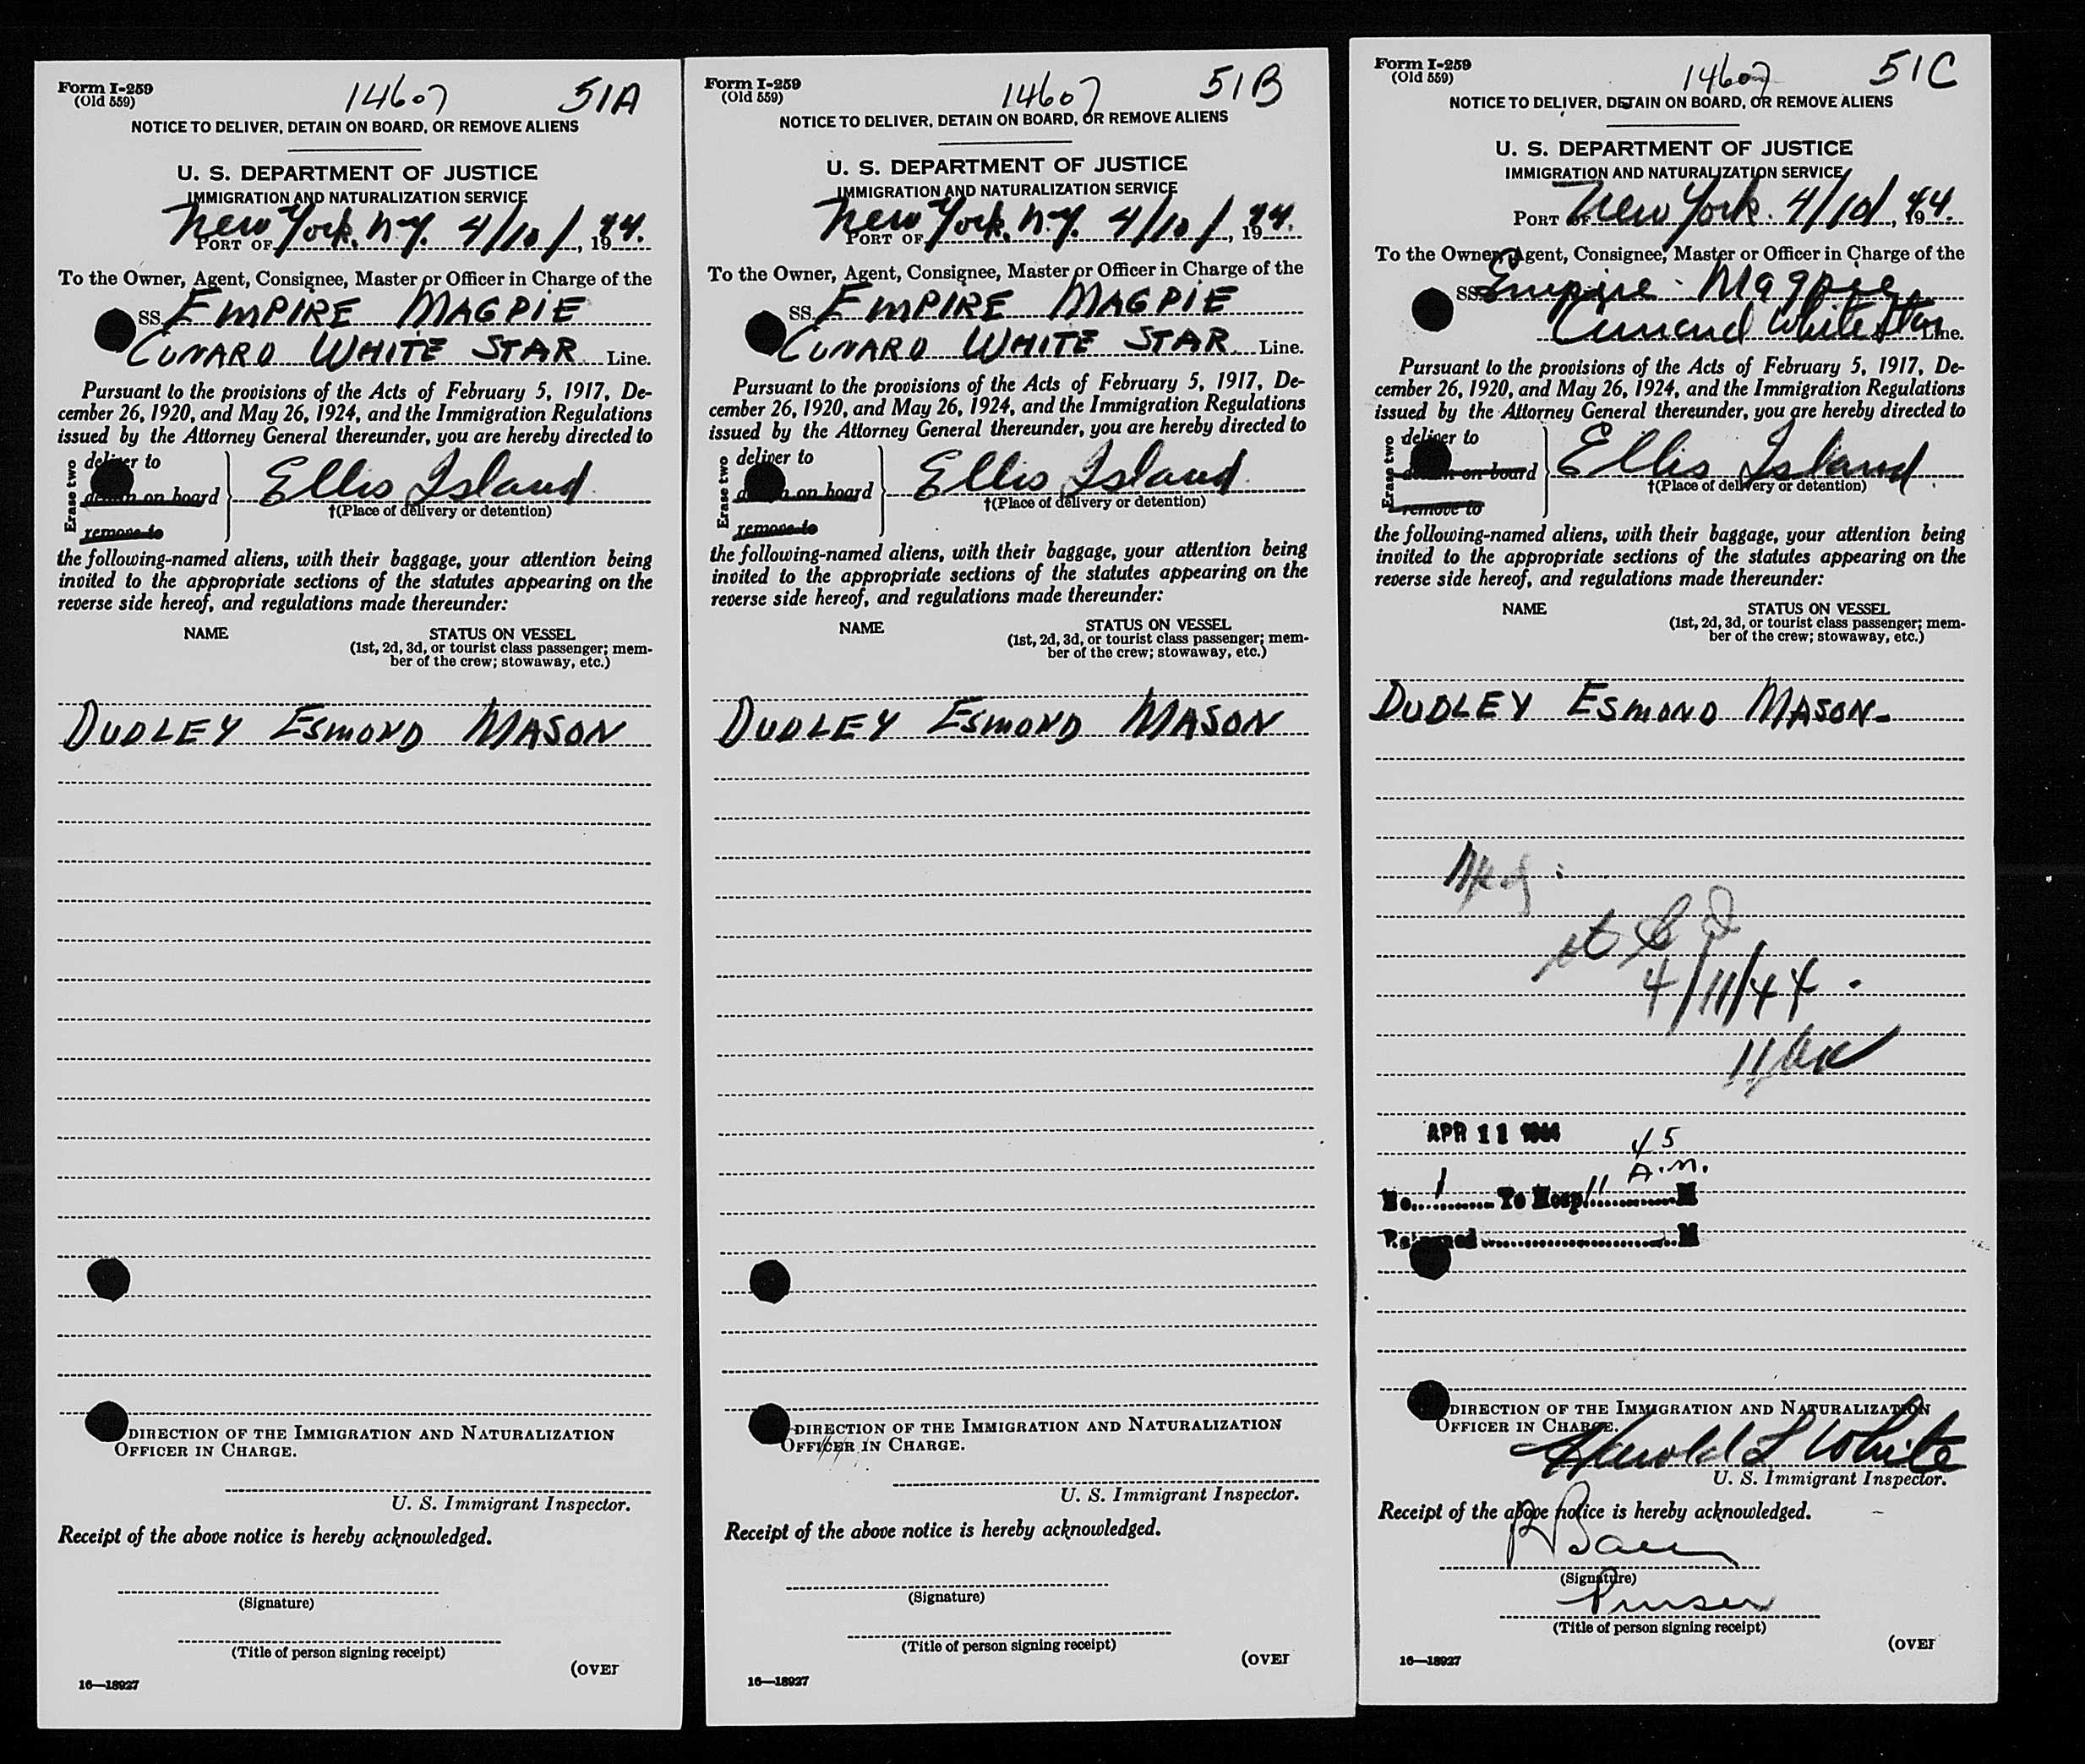 Form I-259
(Old 559)
14607
51A
NOTICE TO DELIVER, DETAIN ON BOARD, OR REMOVE ALIENS
U. S. DEPARTMENT OF JUSTICE
IMMIGRATION AND NATURALIZATION SERVICE
PORT OF New York, N.Y. 4/10/, 1944.
To the Owner, Agent, Consignee, Master or Officer in Charge of the
SS. EMPIRE MAGPIE
CUNARD WHITE STAR Line.
Pursuant to the provisions of the Acts of February 5, 1917, De-
cember 26, 1920, and May 26, 1924, and the Immigration Regulations
issued by the Attorney General thereunder, you are hereby directed to
Erase two
deliver to
detain on board
remove to
Ellis Island
†(Place of delivery or detention)
the following-named aliens, with their baggage, your attention being
invited to the appropriate sections of the statutes appearing on the
reverse side hereof, and regulations made thereunder:
NAME
STATUS ON VESSEL
(1st, 2d, 3d, or tourist class passenger; mem-
ber of the crew; stowaway, etc.)
DUDLEY ESMOND MASON
DIRECTION OF THE IMMIGRATION AND NATURALIZATION
OFFICER IN CHARGE.
U. S. Immigrant Inspector.
Receipt of the above notice is hereby acknowledged.
(Signature)
(Title of person signing receipt)
(OVER
16—18927
Form I-259
(Old 559)
14607
51B
NOTICE TO DELIVER, DETAIN ON BOARD, OR REMOVE ALIENS
U. S. DEPARTMENT OF JUSTICE
IMMIGRATION AND NATURALIZATION SERVICE
PORT OF New York, N.Y. 4/10/, 1944.
To the Owner, Agent, Consignee, Master or Officer in Charge of the
SS. EMPIRE MAGPIE
CUNARD WHITE STAR Line.
Pursuant to the provisions of the Acts of February 5, 1917, De-
cember 26, 1920, and May 26, 1924, and the Immigration Regulations
issued by the Attorney General thereunder, you are hereby directed to
Erase two
deliver to
detain on board
remove to
Ellis Island
†(Place of delivery or detention)
the following-named aliens, with their baggage, your attention being
invited to the appropriate sections of the statutes appearing on the
reverse side hereof, and regulations made thereunder:
NAME
STATUS ON VESSEL
(1st, 2d, 3d, or tourist class passenger; mem-
ber of the crew; stowaway, etc.)
DUDLEY ESMOND MASON
DIRECTION OF THE IMMIGRATION AND NATURALIZATION
OFFICER IN CHARGE.
U. S. Immigrant Inspector.
Receipt of the above notice is hereby acknowledged.
(Signature)
(Title of person signing receipt)
(OVER
16—18927
Form I-259
(Old 559)
14607
51C
NOTICE TO DELIVER, DETAIN ON BOARD, OR REMOVE ALIENS
U. S. DEPARTMENT OF JUSTICE
IMMIGRATION AND NATURALIZATION SERVICE
PORT OF New York. 4/10/, 1944.
To the Owner, Agent, Consignee, Master or Officer in Charge of the
SS. Empire Magpie
Cunard White Star Line.
Pursuant to the provisions of the Acts of February 5, 1917, De-
cember 26, 1920, and May 26, 1924, and the Immigration Regulations
issued by the Attorney General thereunder, you are hereby directed to
Erase two
deliver to
detain on board
remove to
Ellis Island.
†(Place of delivery or detention)
the following-named aliens, with their baggage, your attention being
invited to the appropriate sections of the statutes appearing on the
reverse side hereof, and regulations made thereunder:
NAME
STATUS ON VESSEL
(1st, 2d, 3d, or tourist class passenger; mem-
ber of the crew; stowaway, etc.)
DUDLEY ESMOND MASON
4/11/44
APR 11 1944
45
A.M.
No. 1 To Hosp. 11 M
Returned M
DIRECTION OF THE IMMIGRATION AND NATURALIZATION
OFFICER IN CHARGE.
Harold L White
U. S. Immigrant Inspector.
Receipt of the above notice is hereby acknowledged.
(Signature)
Purser
(Title of person signing receipt)
(OVER
16—18927